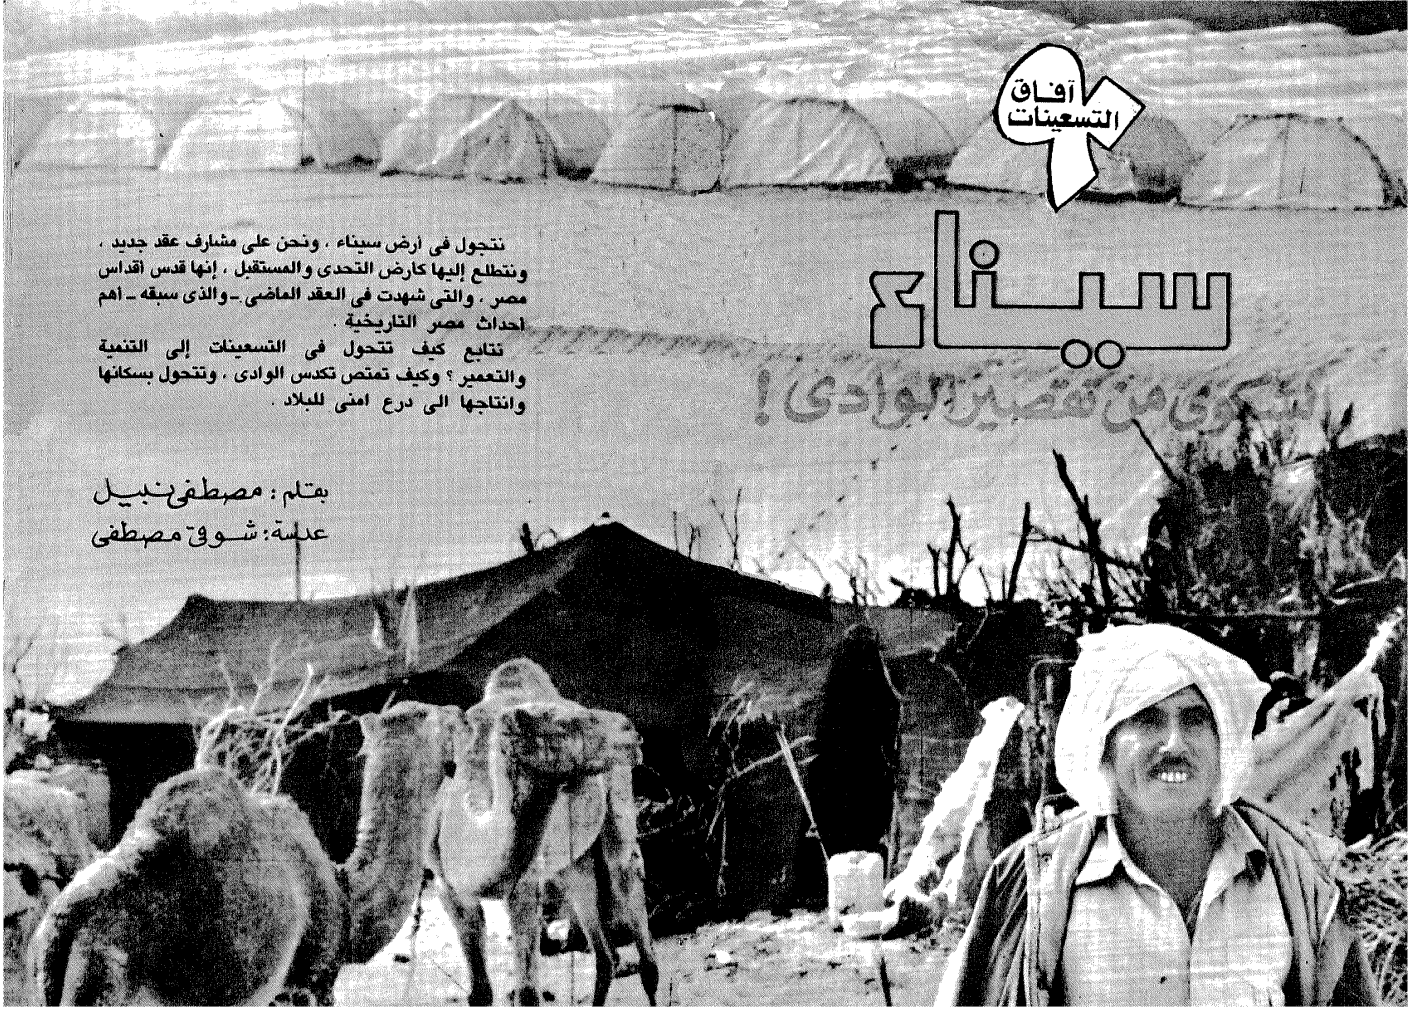 آفاق
التسعينات
سيناء
تشكوى من تقصير الوادى !
نتجول فى أرض سيناء ، ونحن على مشارف عقد جديد ،
ونتطلع إليها كارض التحدى والمستقبل ، إنها قدس أقداس
مصر ، والتى شهدت فى العقد الماضى ـ والذى سبقه ـ أهم
أحداث مصر التاريخية .
نتابع كيف تتحول فى التسعينات إلى التنمية
والتعمير ؟ وكيف تمتص تكدس الوادى ، وتتحول بسكانها
وانتاجها الى درع امنى للبلاد .
بقلم : مصطفى نبيل
عدسة : شوقى مصطفى